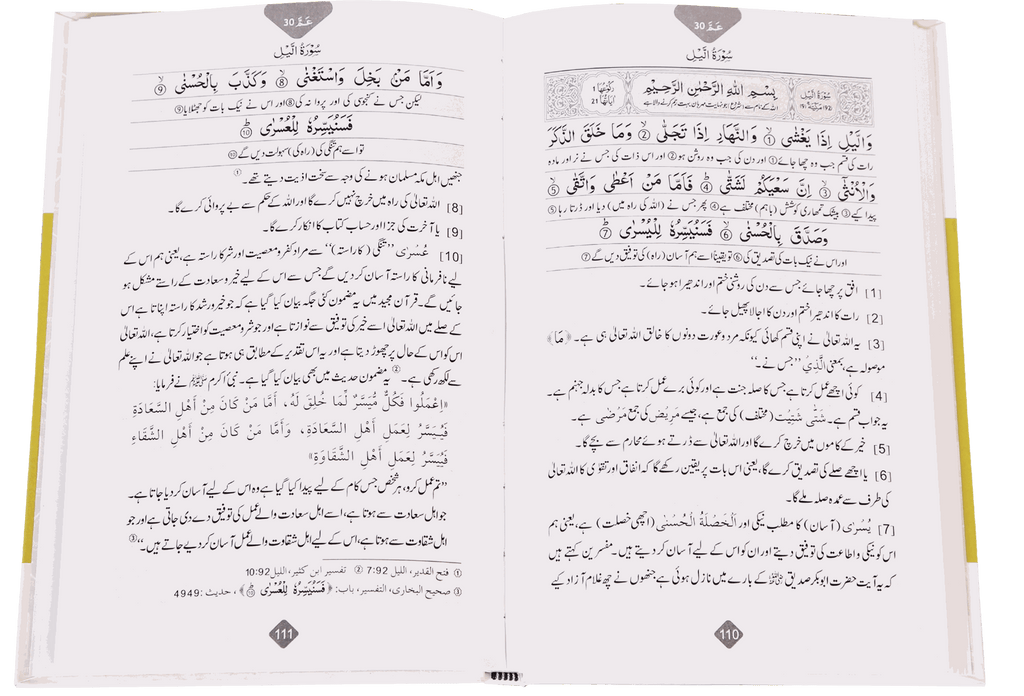 عَمَّ 30
سُوْرَةُ الَّيْلِ
سُوْرَةُ الَّيْلِ
بِسْمِ اللّٰهِ الرَّحْمٰنِ الرَّحِيْمِ
رُكُوْعُهَا 1
اٰيَاتُهَا 21
اللہ کے نام سے (شروع) جو نہایت مہربان، بہت رحم کرنے والا ہے
وَالَّيْلِ اِذَا يَغْشٰى ① وَالنَّهَارِ اِذَا تَجَلّٰى ② وَمَا خَلَقَ الذَّكَرَ
رات کی قسم جب وہ چھا جائے① اور دن کی جب وہ روشن ہو② اور اس ذات کی جس نے نر اور مادہ
وَالْاُنْثٰٓى ③ اِنَّ سَعْيَكُمْ لَشَتّٰى ④ فَاَمَّا مَنْ اَعْطٰى وَاتَّقٰى ⑤
پیدا کیے③ بیشک تمھاری کوشش (باہم) مختلف ہے④ پھر جس نے (اللہ کی راہ میں) دیا اور ڈرتا رہا⑤
وَصَدَّقَ بِالْحُسْنٰى ⑥ فَسَنُيَسِّرُهٗ لِلْيُسْرٰى ⑦
اور اس نے نیک بات کی تصدیق کی⑥ تو یقیناً اسے ہم آسان (راہ) کی توفیق دیں گے⑦
[1] افق پر چھا جائے جس سے دن کی روشنی ختم اور اندھیرا ہو جائے۔
[2] رات کا اندھیرا ختم اور دن کا اجالا پھیل جائے۔
[3] یہ اللہ تعالیٰ نے اپنی قسم کھائی کیونکہ مرد و عورت دونوں کا خالق اللہ تعالیٰ ہی ہے۔ ﴿مَا﴾
موصولہ ہے، بمعنی الَّذِيْ ’’جس نے۔‘‘
[4] کوئی اچھے عمل کرتا ہے جس کا صلہ جنت ہے اور کوئی برے عمل کرتا ہے جس کا بدلہ جہنم ہے۔
یہ جواب قسم ہے۔ شَتّٰى شَتِيْتٌ (مختلف) کی جمع ہے، جیسے مَرِيْضٌ کی جمع مَرْضٰى ہے۔
[5] خیر کے کاموں میں خرچ کرے گا اور اللہ تعالیٰ سے ڈرتے ہوئے محارم سے بچے گا۔
[6] یا اچھے صلے کی تصدیق کرے گا، یعنی اس بات پر یقین رکھے گا کہ انفاق اور تقویٰ کا اللہ تعالیٰ
کی طرف سے عمدہ صلہ ملے گا۔
[7] يُسْرٰى (آسان) کا مطلب نیکی اور اَلْخَصْلَةُ الْحُسْنٰى (اچھی خصلت) ہے، یعنی ہم
اس کو نیکی و اطاعت کی توفیق دیتے اور ان کو اس کے لیے آسان کر دیتے ہیں۔ مفسرین کہتے ہیں
کہ یہ آیت حضرت ابوبکر صدیق رضی اللہ عنہ کے بارے میں نازل ہوئی ہے جنھوں نے چھ غلام آزاد کیے
110
عَمَّ 30
سُوْرَةُ الَّيْلِ
وَاَمَّا مَنْۢ بَخِلَ وَاسْتَغْنٰى ⑧ وَكَذَّبَ بِالْحُسْنٰى ⑨
لیکن جس نے کنجوسی کی اور پروا نہ کی⑧ اور اس نے نیک بات کو جھٹلایا⑨
فَسَنُيَسِّرُهٗ لِلْعُسْرٰى ⑩
تو اسے ہم تنگی کی (راہ کی) سہولت دیں گے⑩
جنھیں اہل مکہ مسلمان ہونے کی وجہ سے سخت اذیت دیتے تھے۔①
[8] اللہ تعالیٰ کی راہ میں خرچ نہیں کرے گا اور اللہ کے حکم سے بے پروائی کرے گا۔
[9] یا آخرت کی جزا اور حساب کتاب کا انکار کرے گا۔
[10] عُسْرٰى ’’تنگی (کا راستہ)‘‘ سے مراد کفر و معصیت اور شر کا راستہ ہے، یعنی ہم اس کے
لیے نافرمانی کا راستہ آسان کر دیں گے جس سے اس کے لیے خیر و سعادت کے راستے مشکل ہو
جائیں گے۔ قرآن مجید میں یہ مضمون کئی جگہ بیان کیا گیا ہے کہ جو خیر و رشد کا راستہ اپناتا ہے اس
کے صلے میں اللہ تعالیٰ اسے خیر کی توفیق سے نوازتا ہے اور جو شر و معصیت کو اختیار کرتا ہے، اللہ تعالیٰ
اس کو اس کے حال پر چھوڑ دیتا ہے اور یہ اس تقدیر کے مطابق ہی ہوتا ہے جو اللہ تعالیٰ نے اپنے علم
سے لکھ رکھی ہے۔② یہ مضمون حدیث میں بھی بیان کیا گیا ہے۔ نبی اکرم ﷺ نے فرمایا:
«اِعْمَلُوا فَكُلٌّ مُّيَسَّرٌ لِّمَا خُلِقَ لَهُ، أَمَّا مَنْ كَانَ مِنْ أَهْلِ السَّعَادَةِ
فَيُيَسَّرُ لِعَمَلِ أَهْلِ السَّعَادَةِ، وَأَمَّا مَنْ كَانَ مِنْ أَهْلِ الشَّقَاءِ
فَيُيَسَّرُ لِعَمَلِ أَهْلِ الشَّقَاوَةِ»
’’تم عمل کرو، ہر شخص جس کام کے لیے پیدا کیا گیا ہے وہ اس کے لیے آسان کر دیا جاتا ہے۔
جو اہل سعادت سے ہوتا ہے، اسے اہل سعادت والے عمل کی توفیق دے دی جاتی ہے اور جو
اہل شقاوت سے ہوتا ہے، اس کے لیے اہل شقاوت والے عمل آسان کر دیے جاتے ہیں۔‘‘③
① فتح القدیر، اللیل 7:92 ② تفسیر ابن کثیر، اللیل 10:92
③ صحیح البخاری، التفسیر، باب: ﴿فَسَنُيَسِّرُهٗ لِلْعُسْرٰى﴾، حدیث: 4949
111